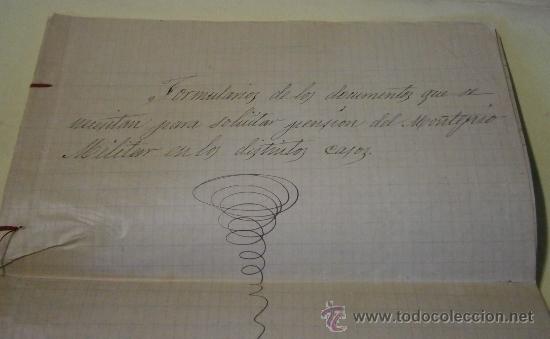 Formularios de los documentos que se
necesitan para solicitar pensión del Montepio
Militar en los distintos casos.
www.todocoleccion.net